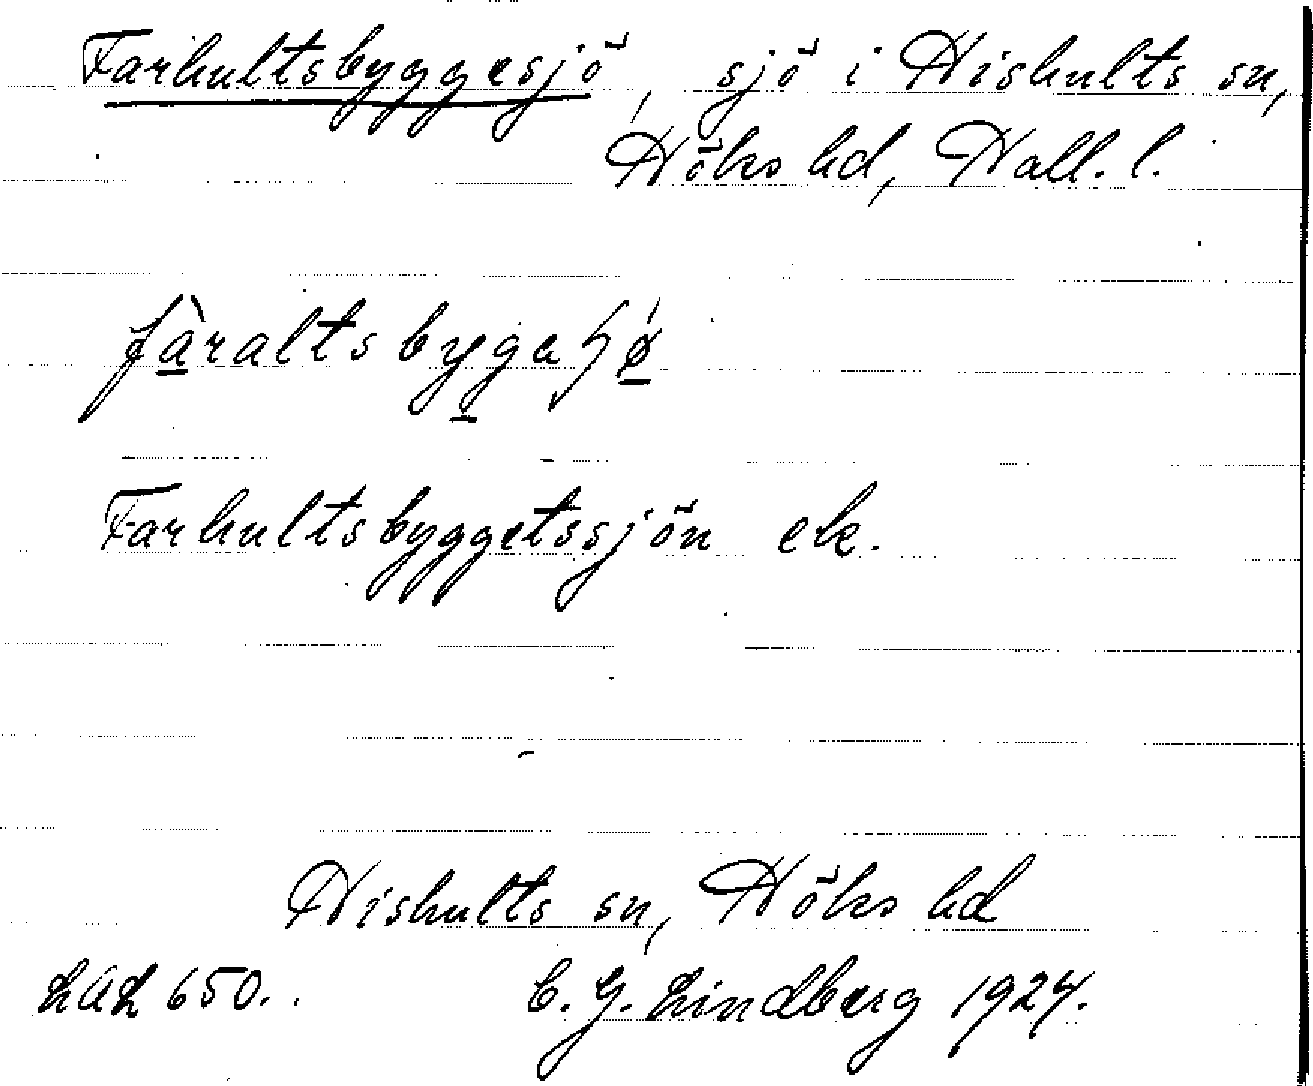 Farhultsbyggesjö, sjö i Hishults sn,
Höks hd, Hall. l.
Farhultsbyggetssjön ek.
Hishults sn, Höks hd
LAL 650.
C. G. Lindberg 1924.